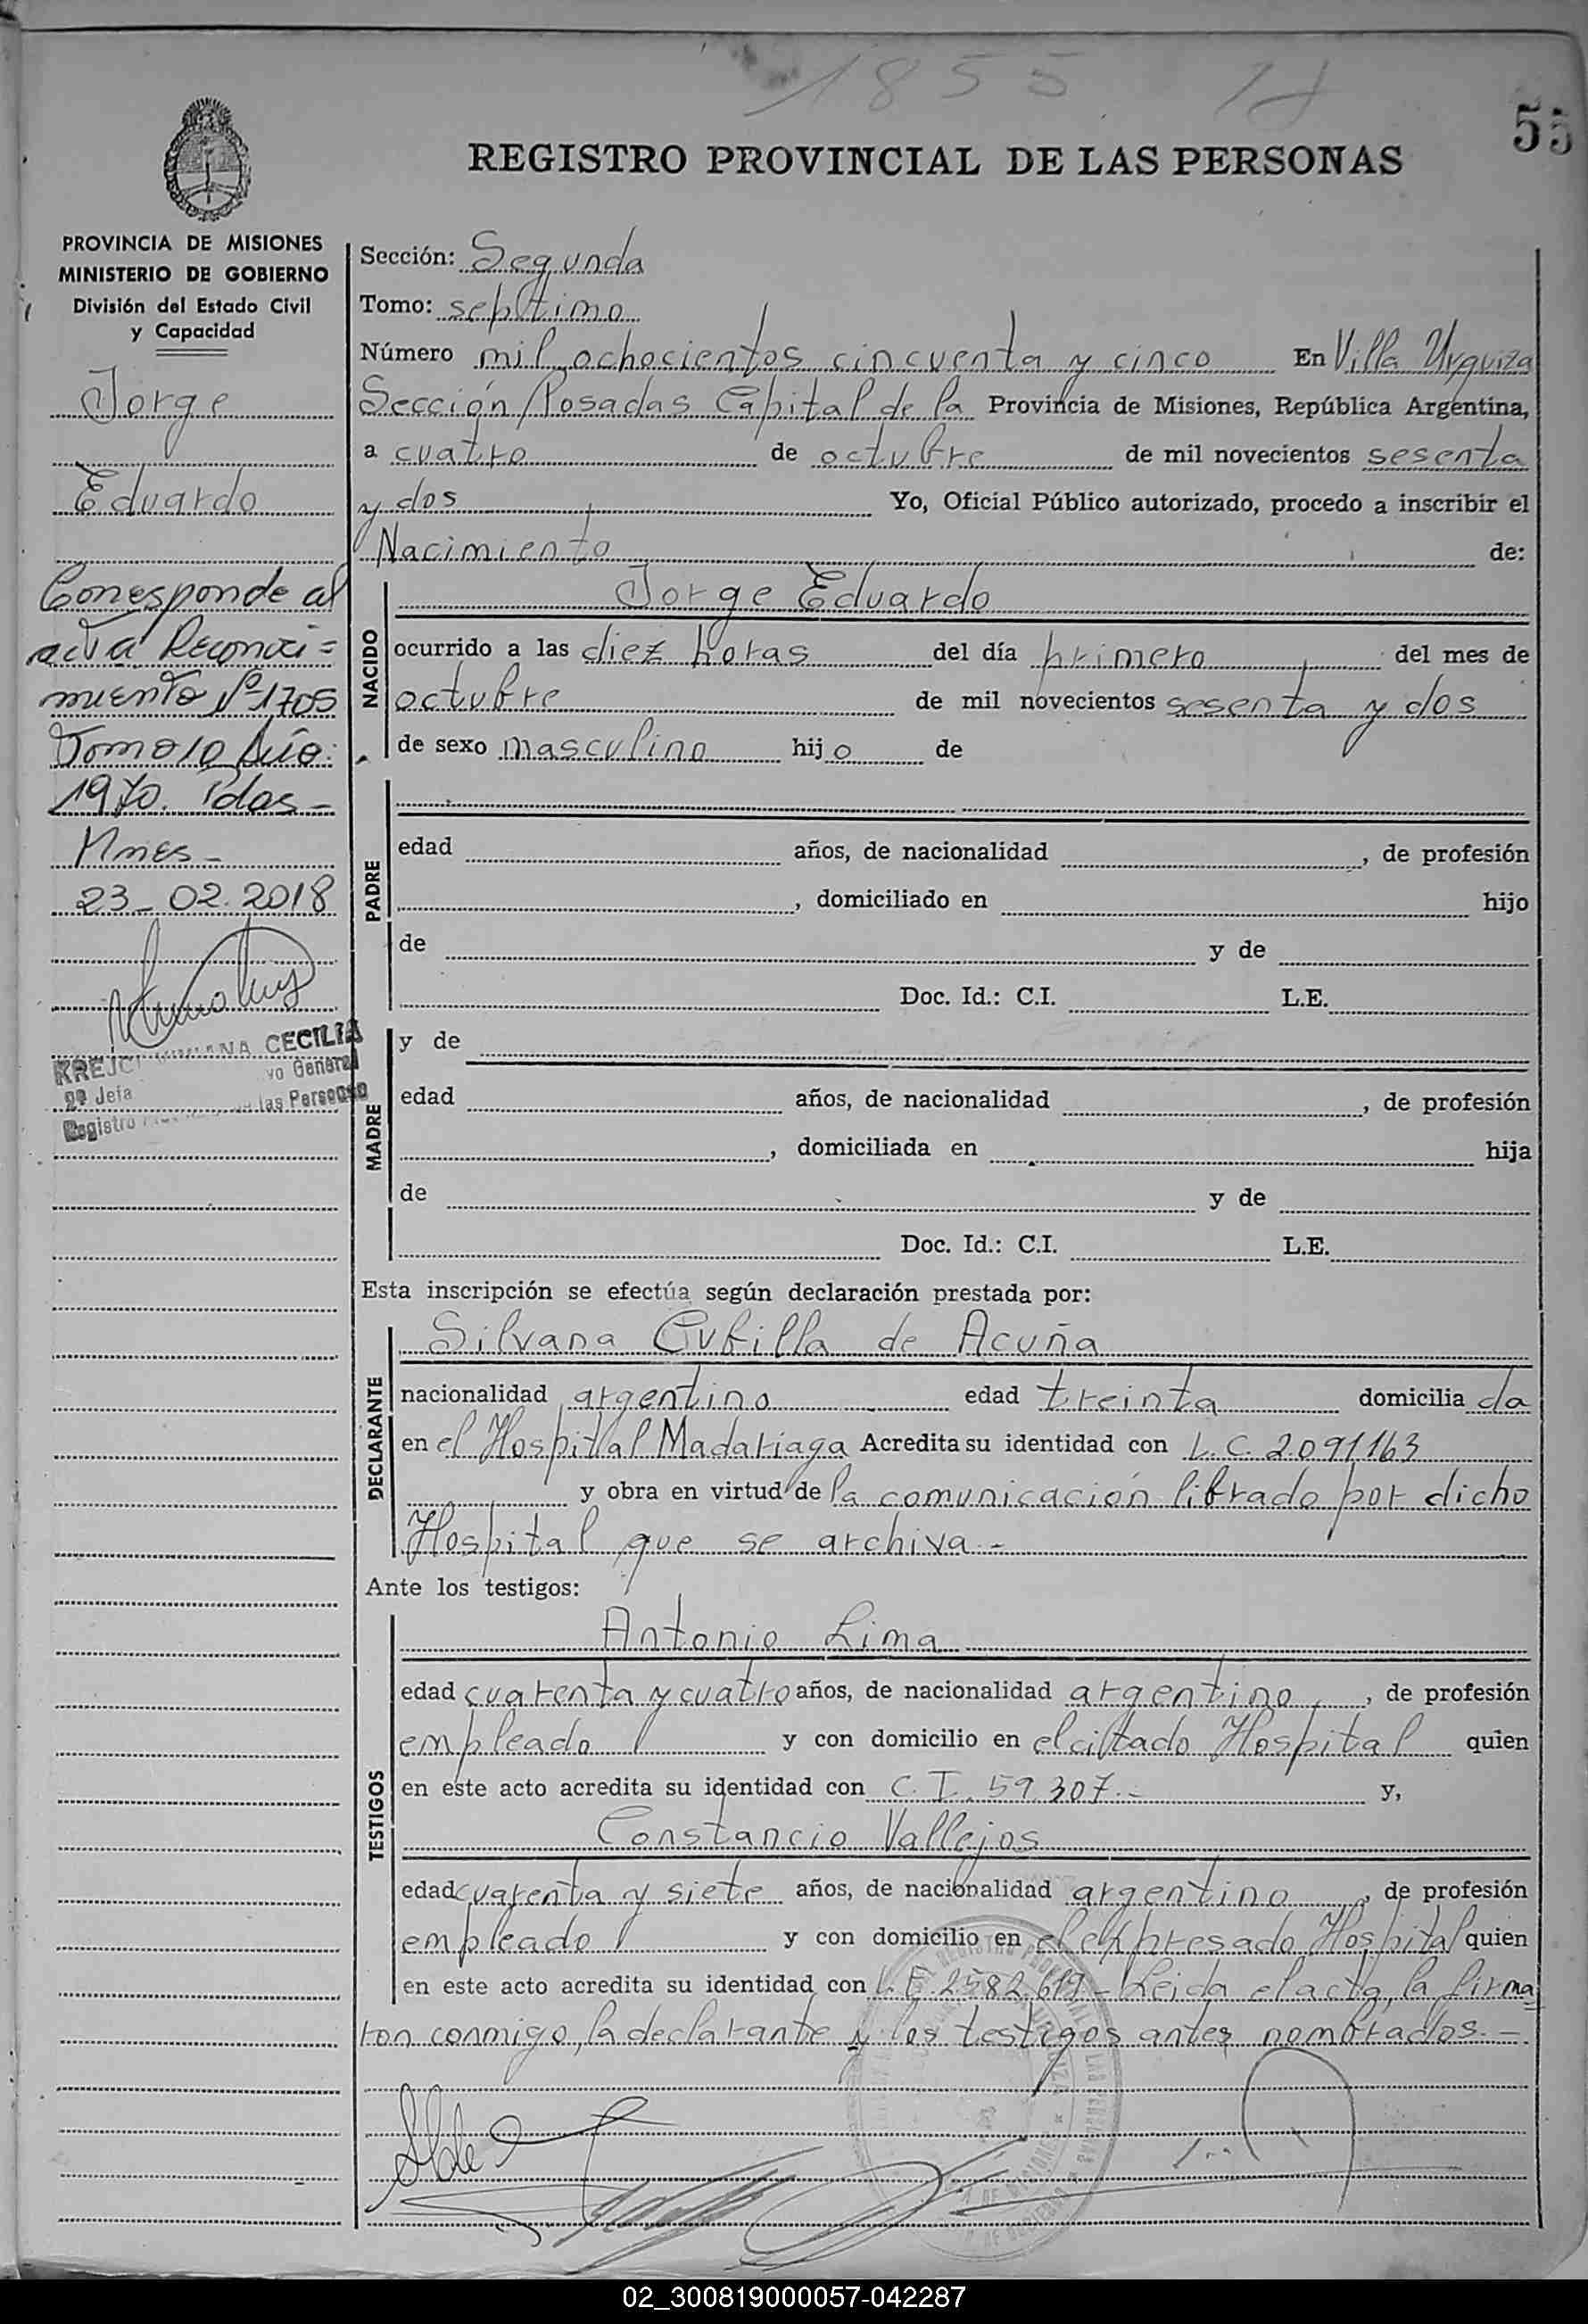 1855
55
REGISTRO PROVINCIAL DE LAS PERSONAS
PROVINCIA DE MISIONES
MINISTERIO DE GOBIERNO
División del Estado Civil
y Capacidad
Jorge
Eduardo
Corresponde al
acta Reconoci=
miento Nº 1705
Tomo 10 Año:
1970. Pdas-
Mnes-
23-02.2018
KREJC CECILIA
General
2º Jefa
Registro las Personas
Sección: Segunda
Tomo: septimo
Número mil ochocientos cincuenta y cinco En Villa Urquiza
Sección Posadas Capital de la Provincia de Misiones, República Argentina,
a cuatro de octubre de mil novecientos sesenta
y dos Yo, Oficial Público autorizado, procedo a inscribir el
Nacimiento de:
NACIDO
Jorge Eduardo
ocurrido a las diez horas del día primero del mes de
octubre de mil novecientos sesenta y dos
de sexo masculino hijo de
PADRE
edad años, de nacionalidad , de profesión
, domiciliado en hijo
de y de
Doc. Id.: C.I. L.E.
MADRE
y de
edad años, de nacionalidad , de profesión
, domiciliada en hija
de y de
Doc. Id.: C.I. L.E.
Esta inscripción se efectúa según declaración prestada por:
DECLARANTE
Silvana Cubilla de Acuña
nacionalidad argentino edad treinta domiciliada
en el Hospital Madariaga Acredita su identidad con L.C. 2.091.163
y obra en virtud de la comunicación librado por dicho
Hospital que se archiva.-
Ante los testigos:
TESTIGOS
Antonio Lima
edad cuarenta y cuatro años, de nacionalidad argentino, de profesión
empleado y con domicilio en el citado Hospital quien
en este acto acredita su identidad con C.I. 59.307.- y,
Constancio Vallejos
edad cuarenta y siete años, de nacionalidad argentino, de profesión
empleado y con domicilio en el expresado Hospital quien
en este acto acredita su identidad con L.E. 2582.619.- Leida el acta, la firma
ron conmigo, la declarante y los testigos antes nombrados.-
02_300819000057-042287